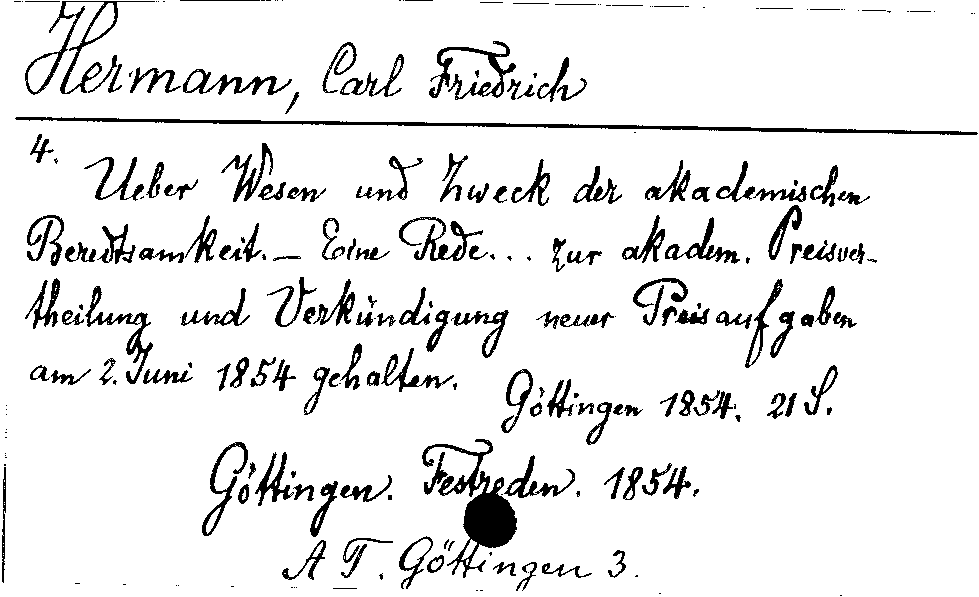 Hermann, Carl Friedrich
4.
Ueber Wesen und Zweck der akademischen
Beredtsamkeit. – Eine Rede... zur akadem. Preisver-
theilung und Verkündigung neuer Preisaufgaben
am 2. Juni 1854 gehalten.
Göttingen 1854. 21 S.
Göttingen. Festreden. 1854.
A T. Göttingen 3.